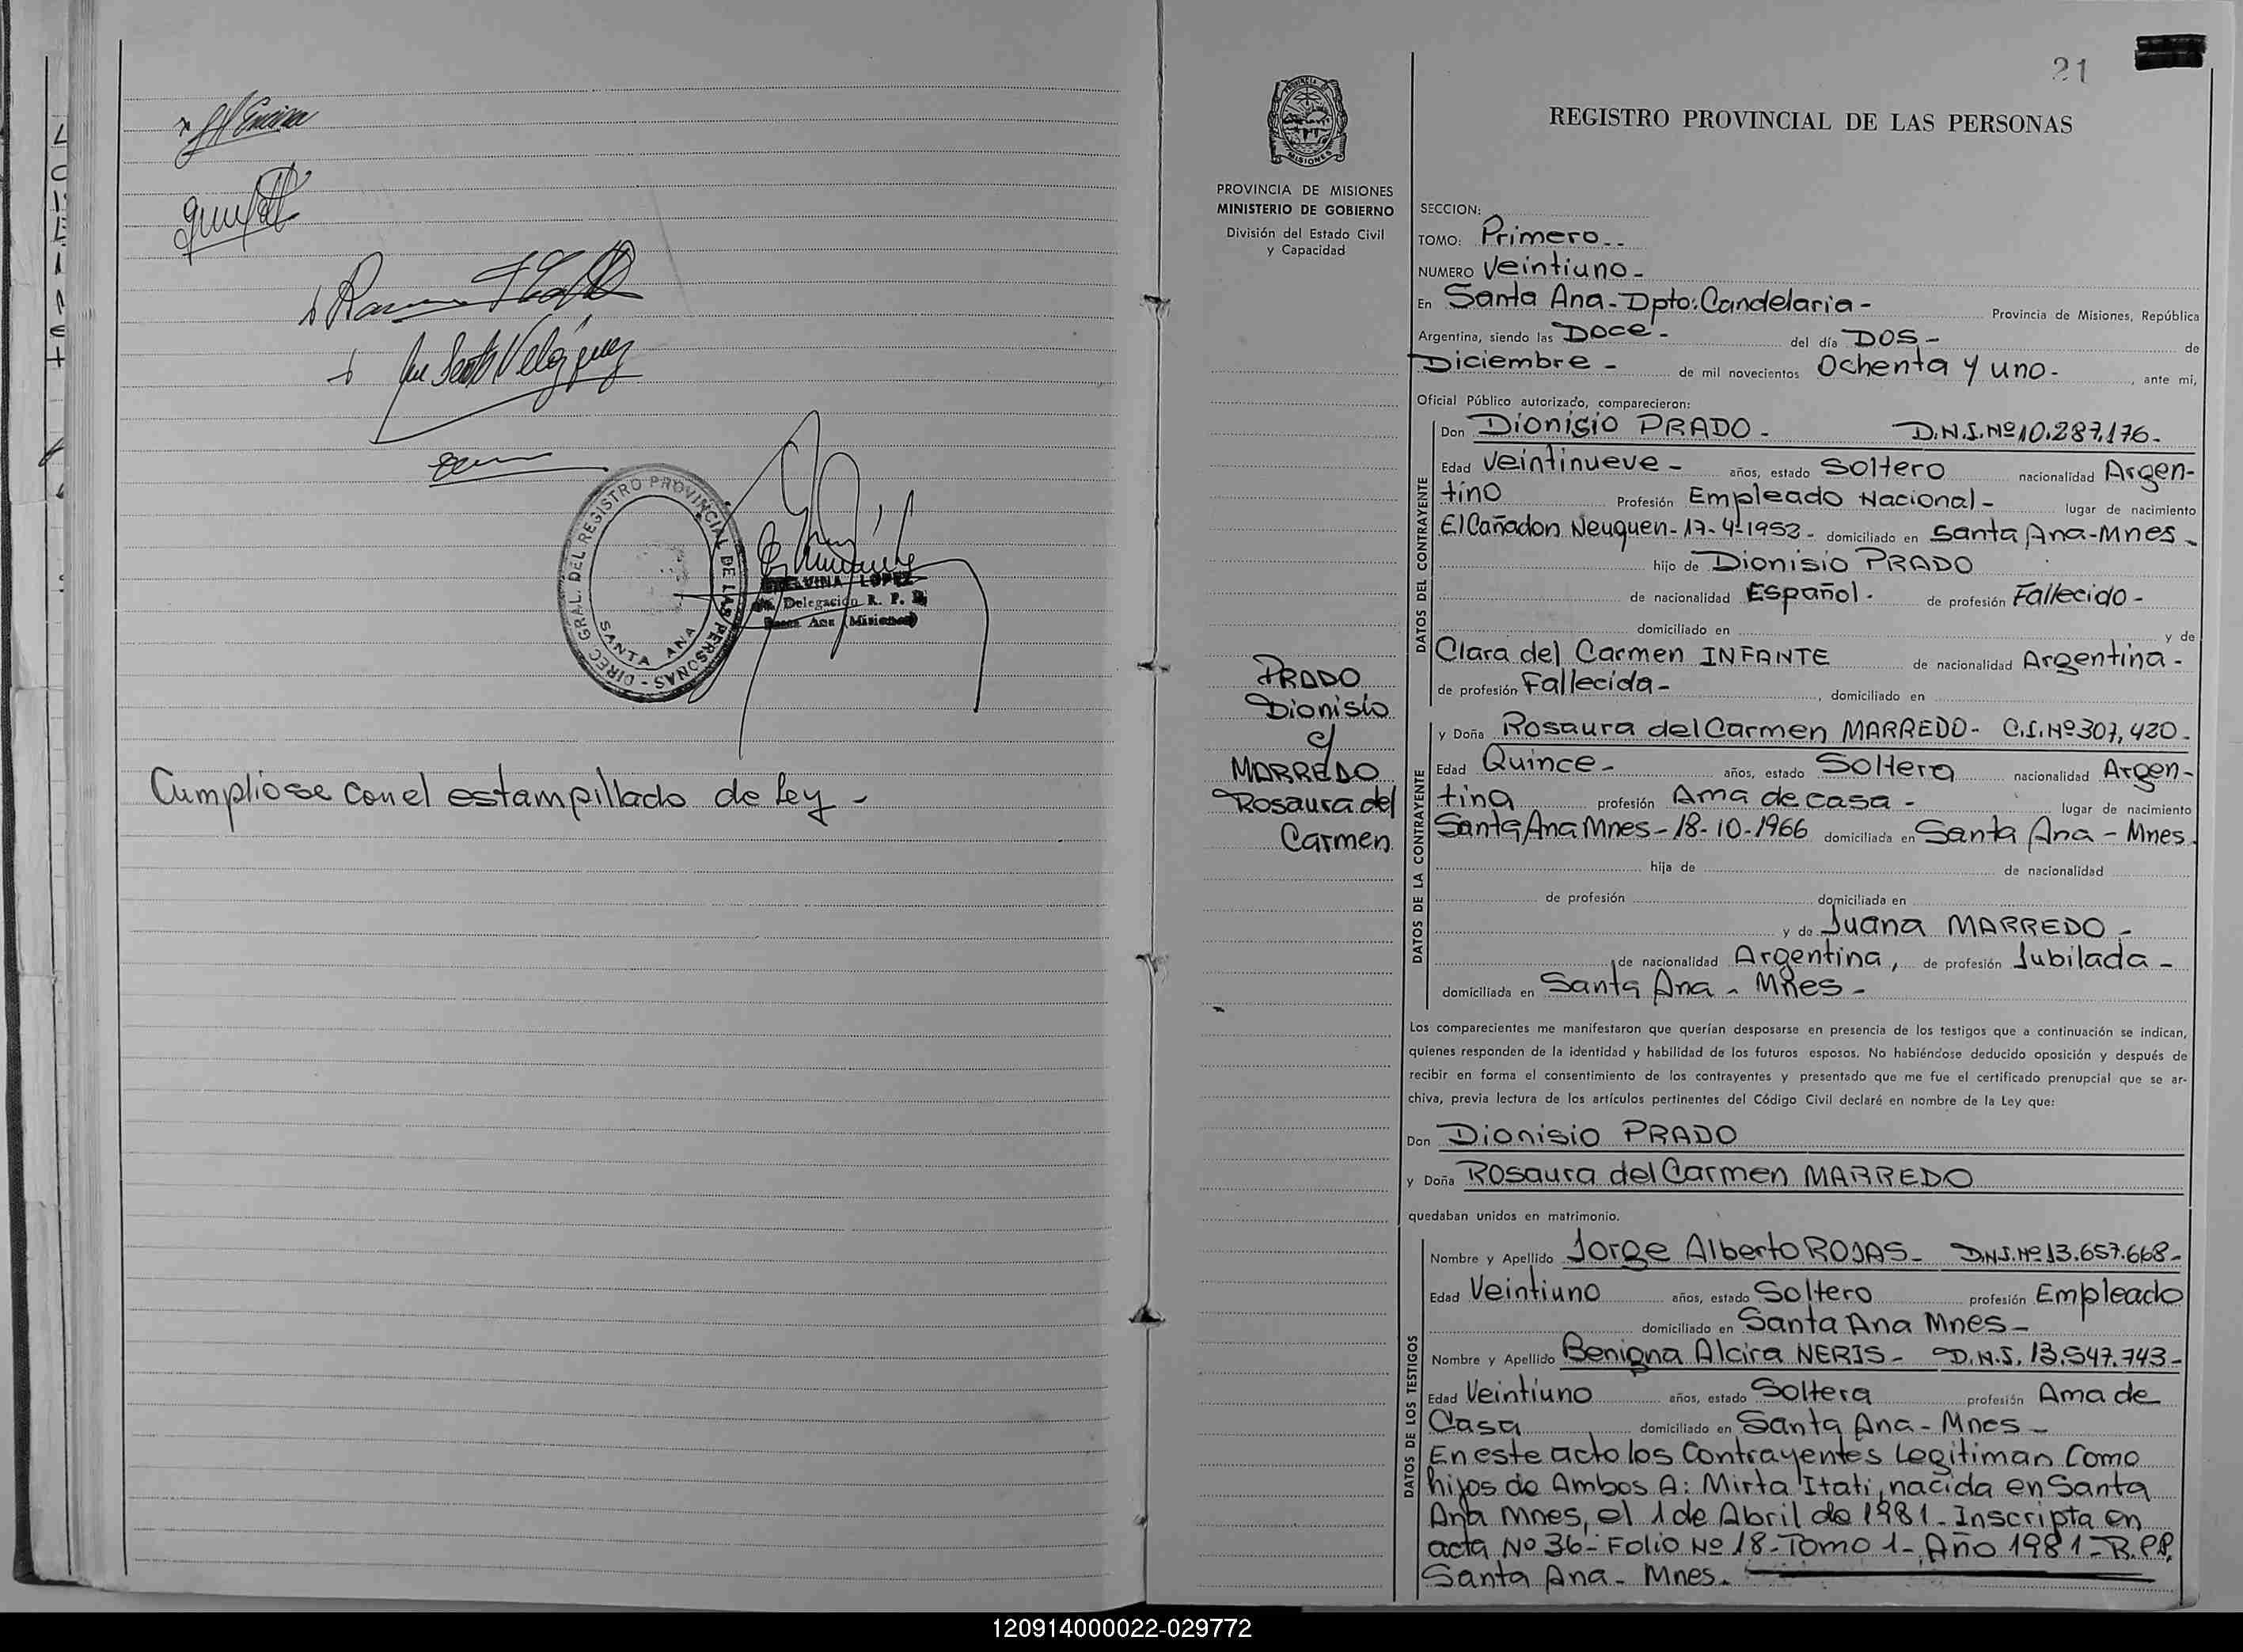 Cumpliose con el estampillado de Ley -
DIREC. GRAL. DEL REGISTRO PROVINCIAL DE LAS PERSONAS -
SANTA ANA
LOPEZ
Delegación R. P. P.
Santa Ana (Misiones)
21
PROVINCIA DE MISIONES
MINISTERIO DE GOBIERNO
División del Estado Civil
y Capacidad
PRADO
Dionisio
y
MARREDO
Rosaura del
Carmen
REGISTRO PROVINCIAL DE LAS PERSONAS
SECCION:
TOMO: Primero--
NUMERO Veintiuno-
En Santa Ana-Dpto:Candelaria- Provincia de Misiones, República
Argentina, siendo las Doce- del día DOS- de
Diciembre- de mil novecientos Ochenta y uno- , ante mi,
Oficial Público autorizado, comparecieron:
DATOS DEL CONTRAYENTE
Don Dionisio PRADO- D.N.I.Nº10.287.176-
Edad Veintinueve- años, estado Soltero nacionalidad Argen-
tino Profesión Empleado Nacional- lugar de nacimiento
El Cañadon Neuquen-17-4-1952- domiciliado en Santa Ana-Mnes-
hijo de Dionisio PRADO
de nacionalidad Español. de profesión Fallecido-
domiciliado en y de
Clara del Carmen INFANTE de nacionalidad Argentina-
de profesión Fallecida- , domiciliado en
DATOS DE LA CONTRAYENTE
y Doña Rosaura del Carmen MARREDO- C.I.Nº307,420-
Edad Quince- años, estado Soltera nacionalidad Argen-
tina profesión Ama de casa- lugar de nacimiento
Santa Ana Mnes-18-10-1966 domiciliada en Santa Ana-Mnes.
hija de de nacionalidad
de profesión domiciliada en
y de Juana MARREDO-
de nacionalidad Argentina, de profesión Jubilada-
domiciliada en Santa Ana-Mnes-
Los comparecientes me manifestaron que querían desposarse en presencia de los testigos que a continuación se indican,
quienes responden de la identidad y habilidad de los futuros esposos. No habiéndose deducido oposición y después de
recibir en forma el consentimiento de los contrayentes y presentado que me fue el certificado prenupcial que se ar-
chiva, previa lectura de los artículos pertinentes del Código Civil declaré en nombre de la Ley que:
Don Dionisio PRADO
y Doña Rosaura del Carmen MARREDO
quedaban unidos en matrimonio.
DATOS DE LOS TESTIGOS
Nombre y Apellido Jorge Alberto ROJAS- D.N.I.Nº13.657.668-
Edad Veintiuno años, estado Soltero profesión Empleado
domiciliado en Santa Ana Mnes-
Nombre y Apellido Benigna Alcira NERIS- D.N.I. 13.547.743-
Edad Veintiuno años, estado Soltera profesión Ama de
Casa domiciliado en Santa Ana-Mnes-
En este acto los Contrayentes Legitiman Como
hijos de Ambos A: Mirta Itati, nacida en Santa
Ana Mnes, el 1 de Abril de 1981-Inscripta en
acta Nº 36-Folio Nº 18-Tomo 1-Año 1981-R.P.P.
Santa Ana-Mnes.
120914000022-029772